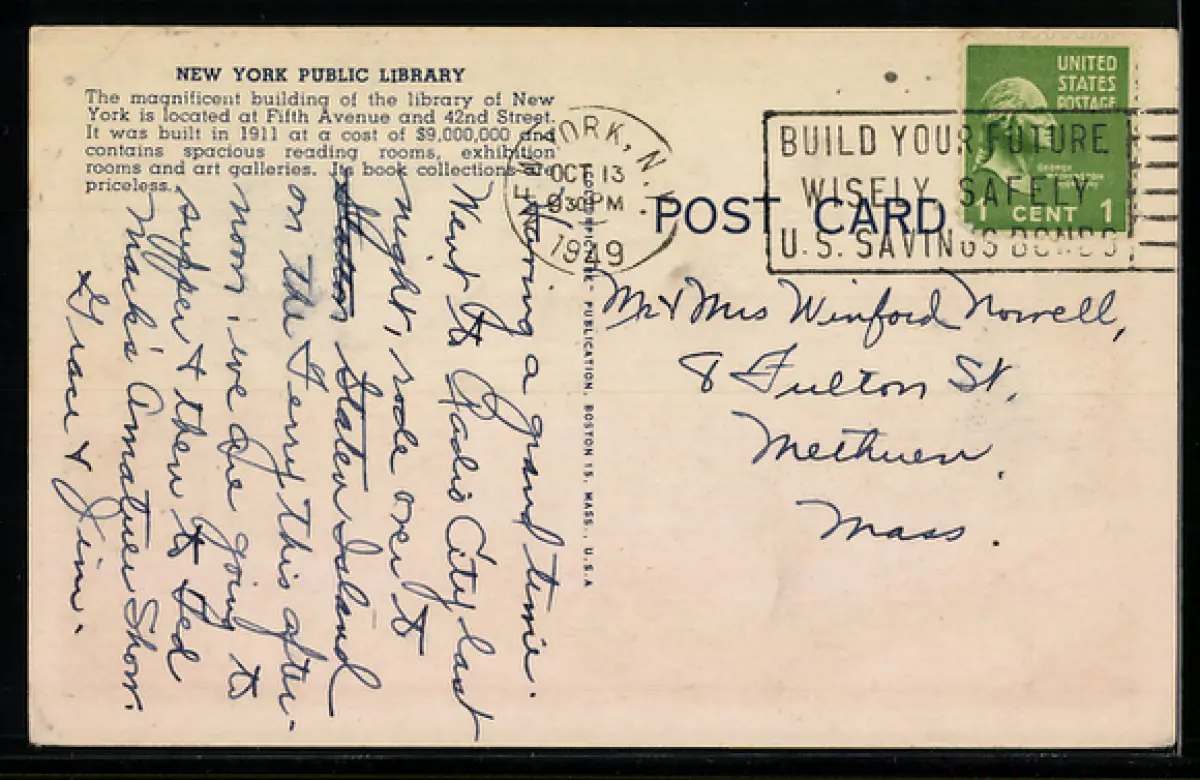 NEW YORK PUBLIC LIBRARY
The magnificent building of the library of New
York is located at Fifth Avenue and 42nd Street.
It was built in 1911 at a cost of $9,000,000 and
contains spacious reading rooms, exhibition
rooms and art galleries. Its book collections are
priceless.
Having a grand time.
Went to Radio City last
night, rode over to
Staten Island
on the Ferry this after-
noon, we are going to
supper & then to Ted
Mack's Amatuer Show.
Grace & Jim.
PUBLICATION, BOSTON 15, MASS., U.S.A
NEW YORK, N.Y.
OCT 13
9 30 PM
1949
BUILD YOUR FUTURE
WISELY SAFELY
U.S. SAVINGS BONDS
UNITED
STATES
POSTAGE
GEORGE
WASHINGTON
1 CENT 1
POST CARD
Mr & Mrs Winford Norwell,
8 Fulton St.
Methuen.
Mass.